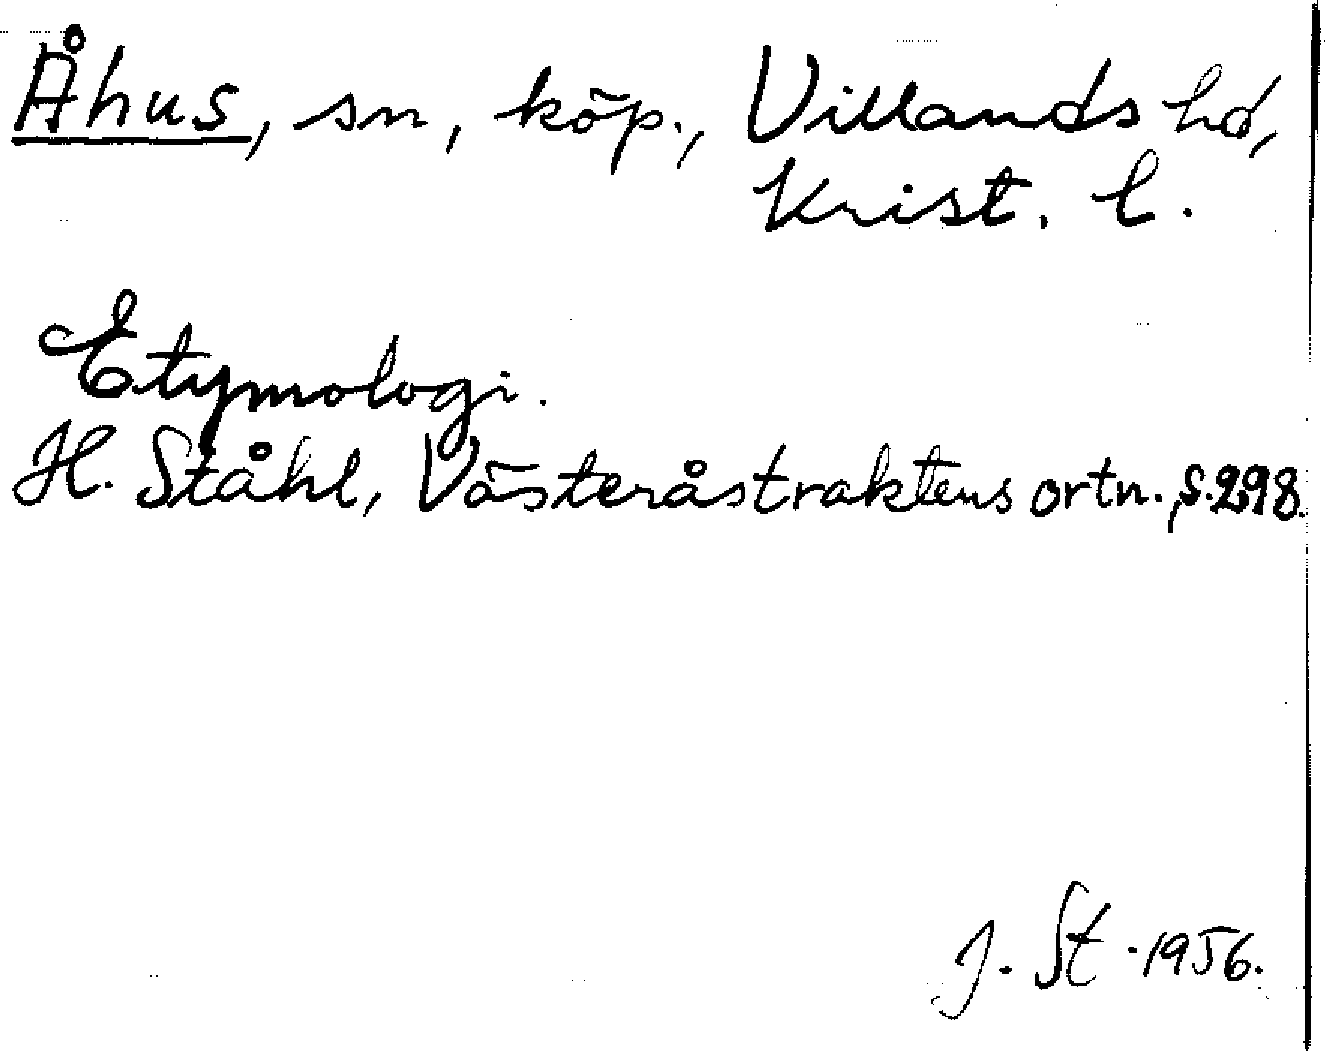 Åhus, sn, köp., Villands hd,
Krist. l.
Etymologi.
H. Ståhl, Västeråstraktens ortn., s. 298.
J. St. 1956.